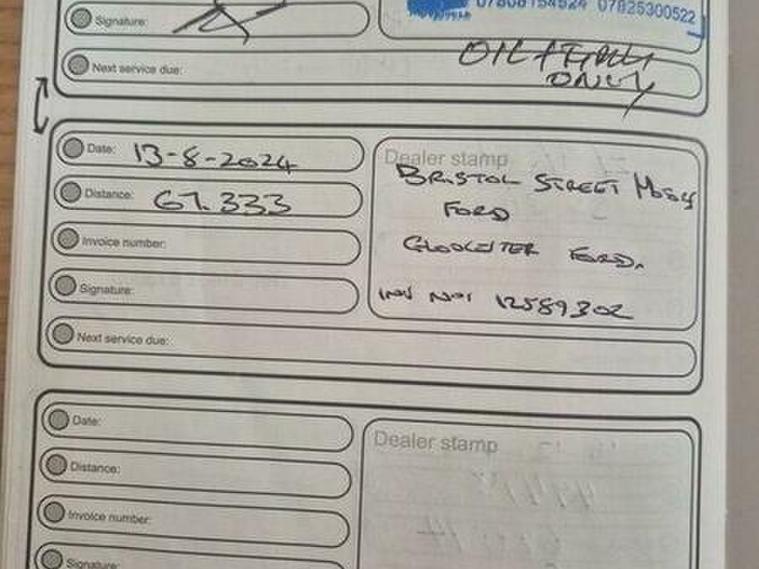 Signature:
07825300522
Next service due:
OIL & FILTER
ONLY
Date: 13-8-2024
Dealer stamp
BRISTOL STREET MOTORS
Distance: 67.333
FORD
Invoice number:
GLOUCESTER FORD.
Signature:
INV NO: 12589302
Next service due:
Date:
Dealer stamp
Distance:
Invoice number:
Signature: